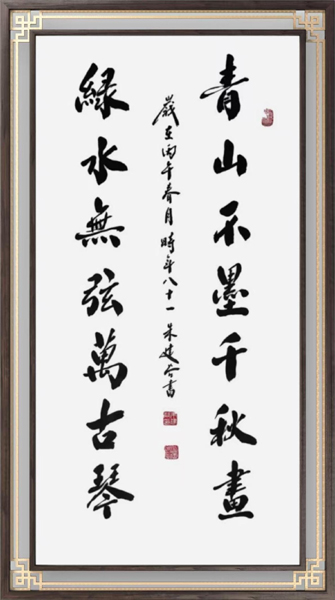 青山不墨千秋畫
緑水無弦萬古琴
歲在丙午春月時年八十一朱建書